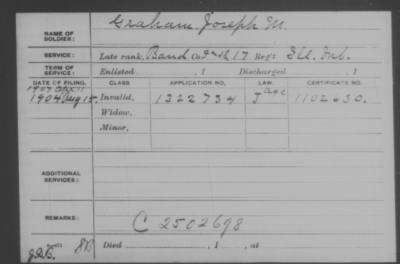 NAME OF SOLDIER: Graham, Joseph M.
SERVICE: Late rank, Band Co. 17 Reg't Ill. Inf.
TERM OF SERVICE: Enlisted , 1 Discharged , 1
DATE OF FILING. CLASS. APPLICATION NO. LAW. CERTIFICATE NO.
1907
1904 Aug 15. Invalid, 1322734 1102630.
Widow,
Minor,
ADDITIONAL SERVICES:
REMARKS: C 2502698
Died , 1 , at